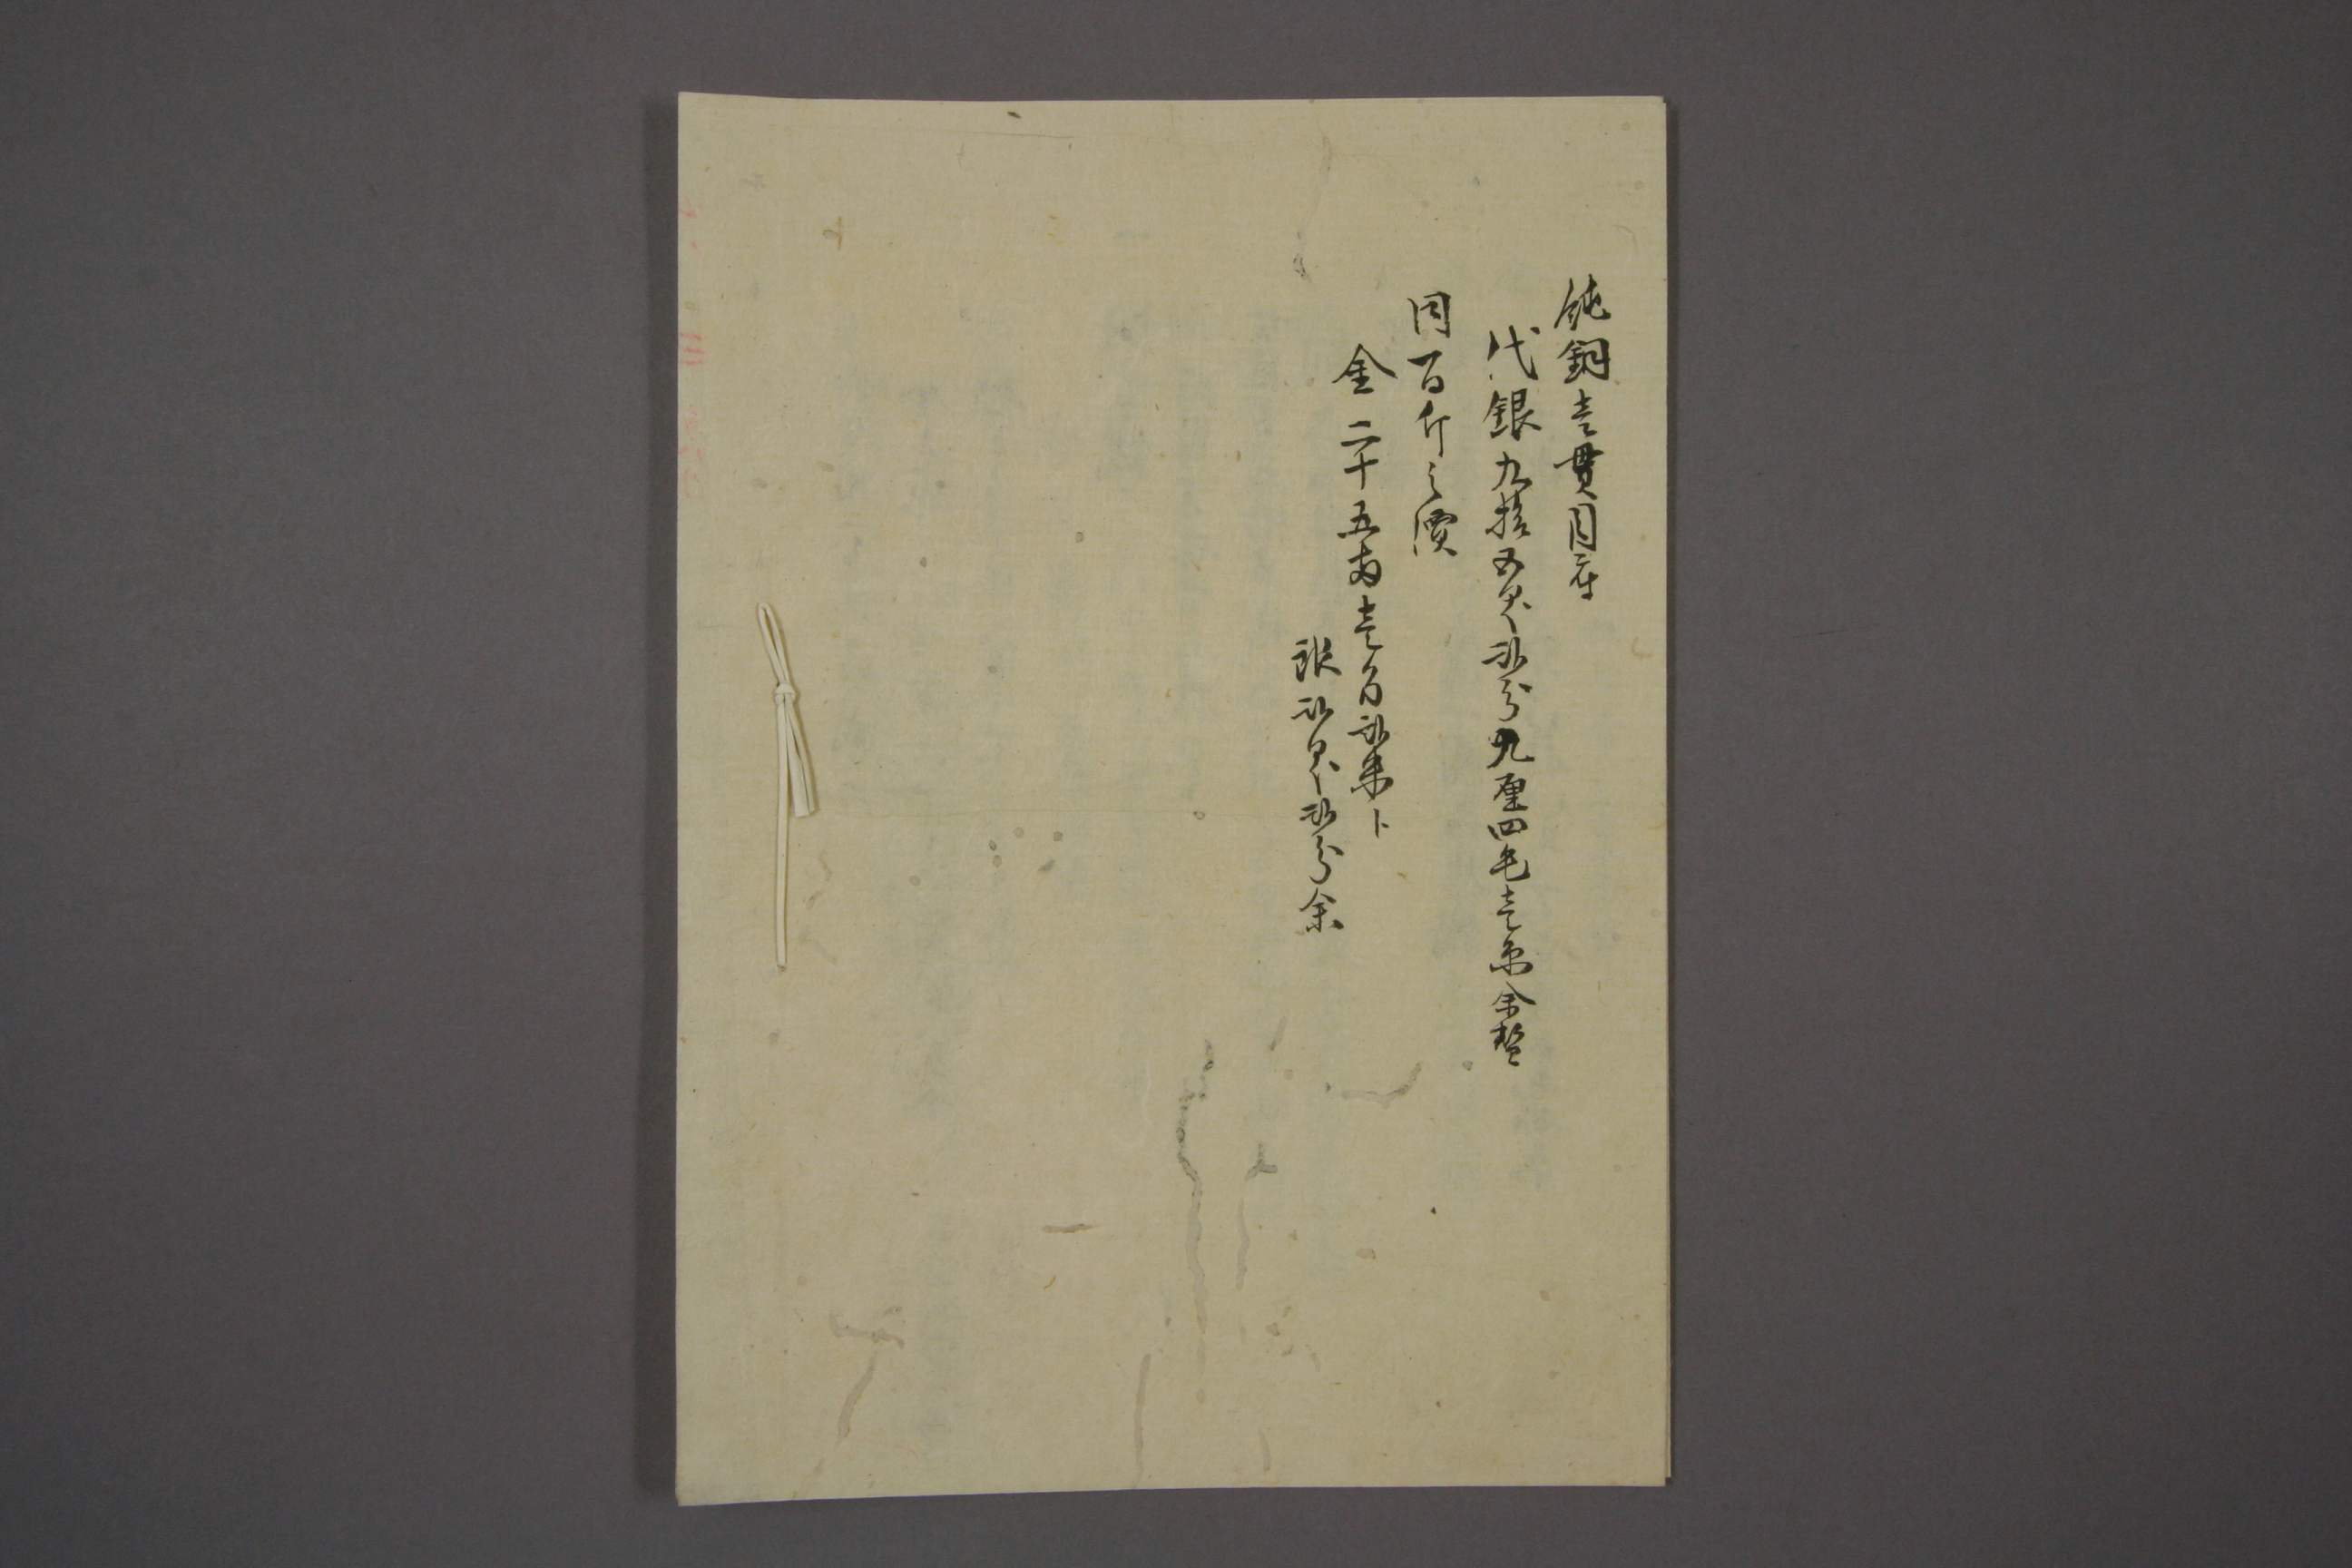 鈍銅壱貫目ニ付
代銀九拾五匁弐分九厘四毛壱糸余替
同百斤之價
金二十五両壱分弐朱ト
銀弐匁弐分余